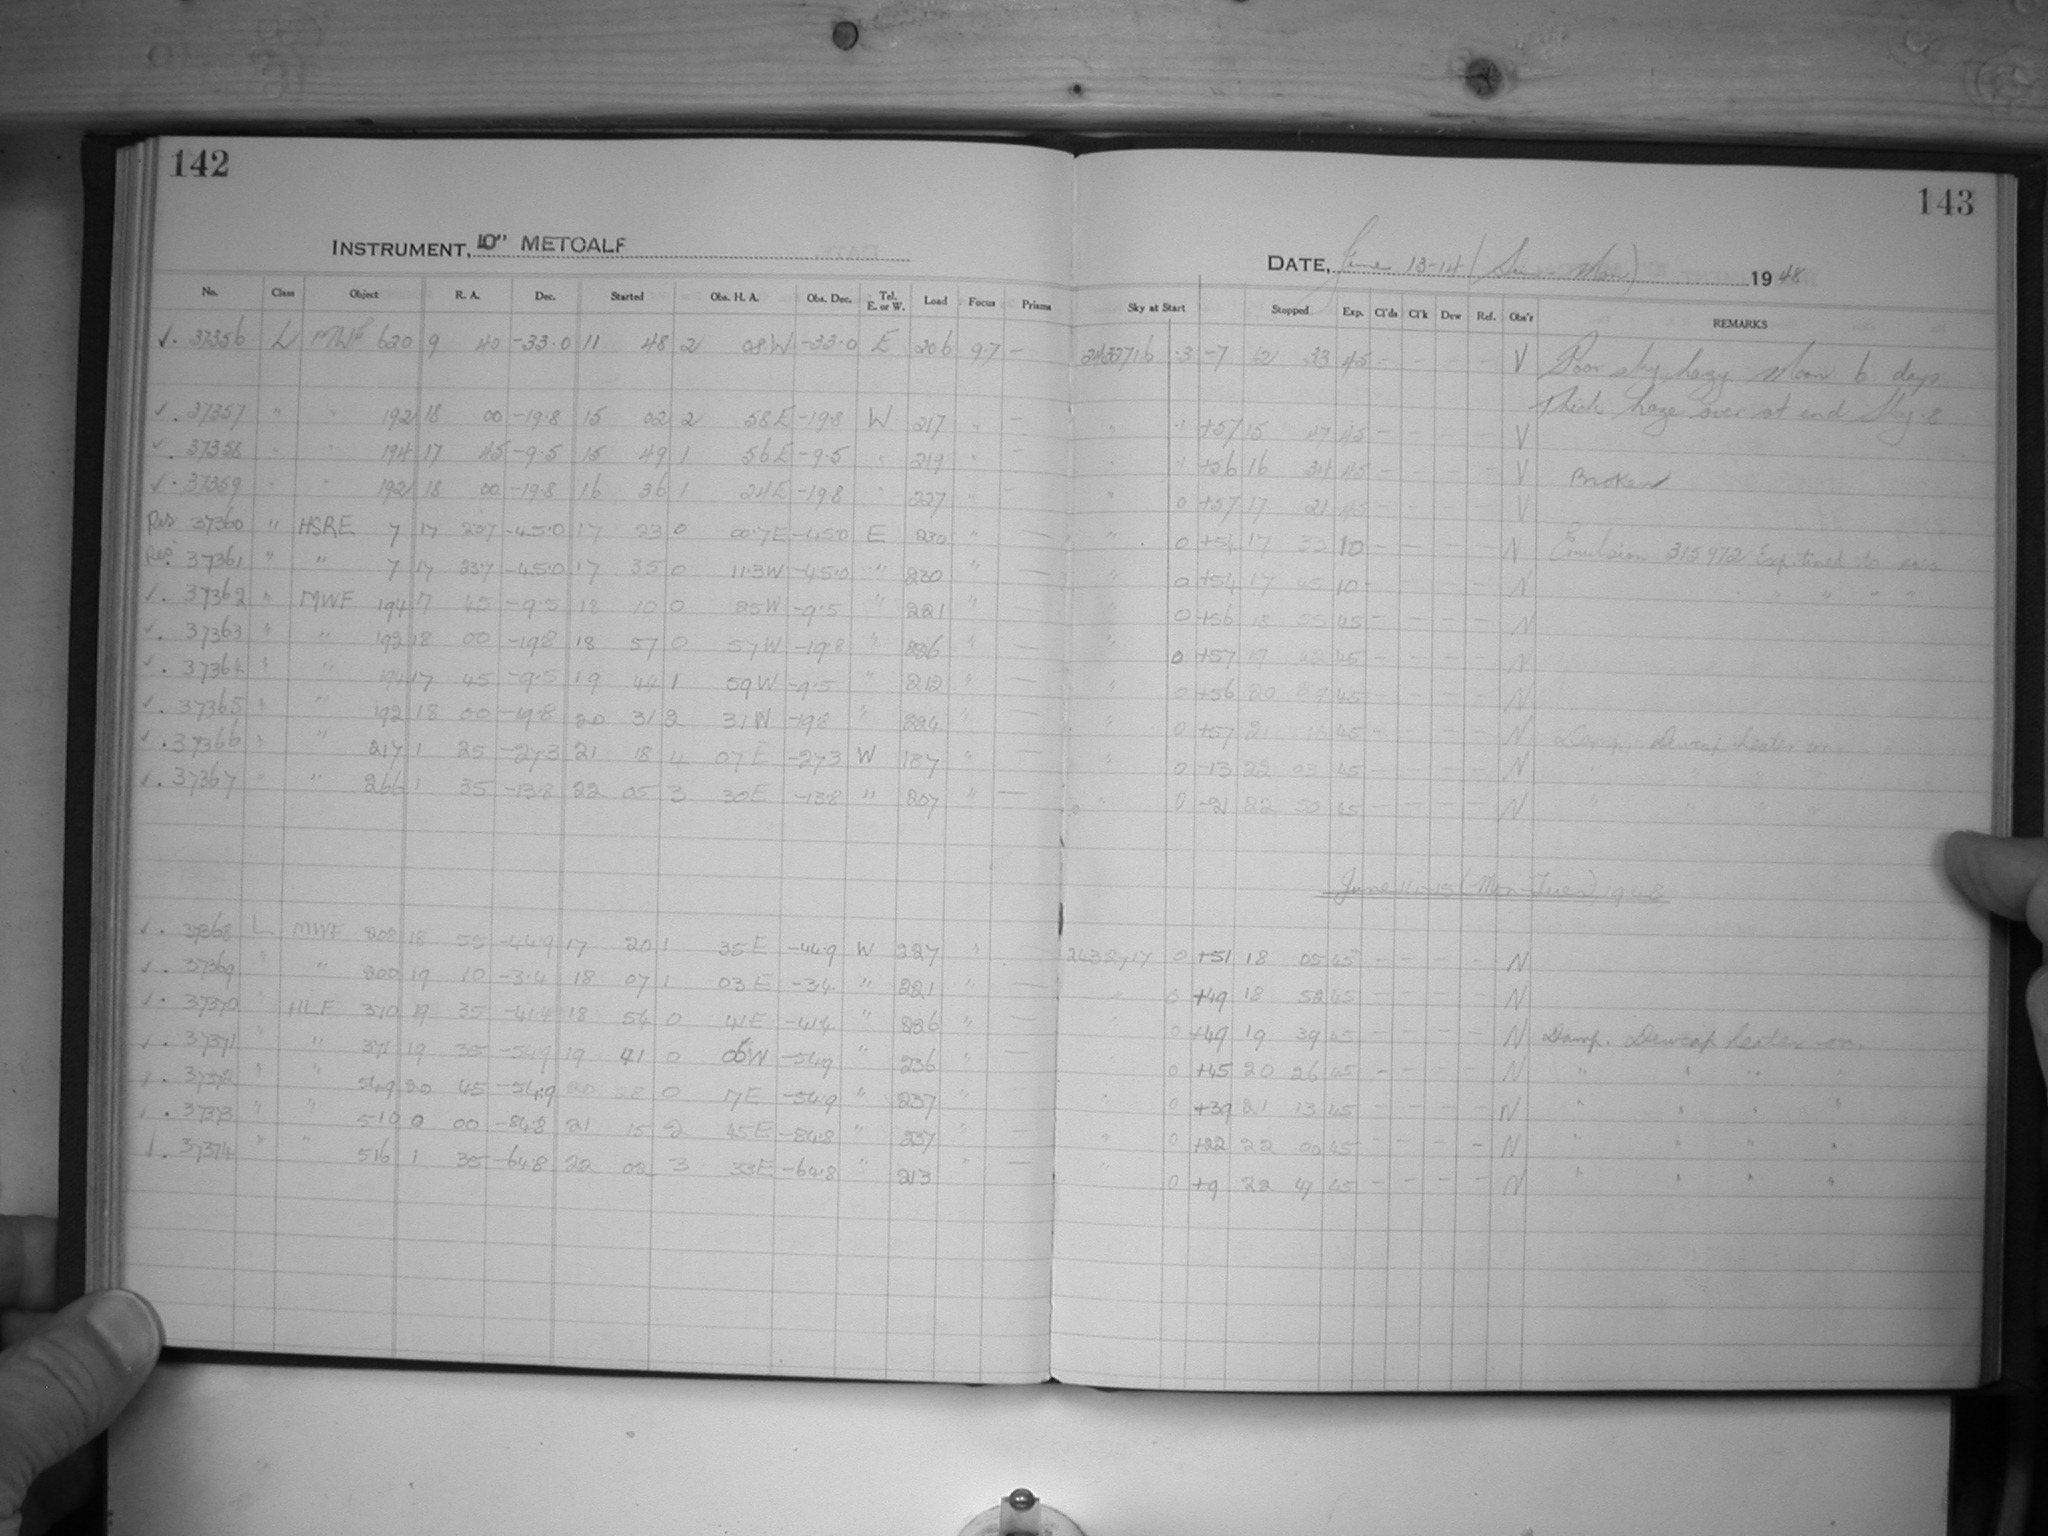 142
INSTRUMENT, 10" METCALF
No. Class Object R. A. Dec. Started Obs. H. A. Obs. Dec. Tel. E. or W. Load Focus Prisms
√. 37356 L MWF 620 9 40 -33.0 11 48 2 08 W -33.0 E 206 9.7 -
√. 37357 " " 192 18 00 -19.8 15 02 2 58 E -19.8 W 217 " -
√. 37358 " " 194 17 45 -9.5 15 49 1 56 E -9.5 " 219 " -
√. 37359 " " 192 18 00 -19.8 16 36 1 24 E -19.8 " 227 " -
Res 37360 " HSRE 7 17 23.7 -45.0 17 23 0 00.7 E -45.0 E 230 " -
Res. 37361 " " 7 17 23.7 -45.0 17 35 0 11.3 W -45.0 " 230 " -
√. 37362 " MWF 194 17 45 -9.5 18 10 0 25 W -9.5 " 221 " -
√. 37363 " " 192 18 00 -19.8 18 57 0 57 W -19.8 " 226 " -
√. 37364 " " 194 17 45 -9.5 19 44 1 59 W -9.5 " 212 " -
√. 37365 " " 192 18 00 -19.8 20 31 2 31 W -19.8 " 224 " -
√. 37366 " " 217 1 25 -27.3 21 18 4 07 E -27.3 W 187 " -
√. 37367 " " 266 1 35 -13.8 22 05 3 30 E -13.8 " 207 " -
√. 37368 L MWF 208 18 55 -44.9 17 20 1 35 E -44.9 W 227 " -
√. 37369 " " 200 19 10 -3.4 18 07 1 03 E -3.4 " 221 " -
√. 37370 " HLF 370 19 35 -41.4 18 54 0 41 E -41.4 " 226 " -
√. 37371 " " 371 19 35 -54.9 19 41 0 06 W -54.9 " 236 " -
√. 37372 " " 549 20 45 -54.9 20 28 0 17 E -54.9 " 237 " -
√. 37373 " " 510 0 00 -84.8 21 15 2 45 E -84.8 " 237 " -
√. 37374 " " 516 1 35 -64.8 22 02 3 33 E -64.8 " 213 " -
143
DATE, June 13-14 (Sun - Mon) 1948
Sky at Start Stopped Exp. Cl'ds Cl'k Dew Ref. Obs'r REMARKS
2432716 .3 -7 12 33 45 - - - - V Poor sky hazy. Moon 6 days
Thick haze over at end Sky .8
" .1 +57 15 47 45 - - - - V
" " +56 16 34 45 - - - - V Broken
" 0 +57 17 21 45 - - - - V
" 0 +54 17 33 10 - - - - N Emulsion 315972 Exp.
" 0 +54 17 45 10 - - - - N " " " "
" 0 +56 18 55 45 - - - - N
" 0 +57 19 42 45 - - - - N
" 0 +56 20 29 45 - - - - N
" 0 +57 21 16 45 - - - - N Damp. Dewcap heater on.
" 0 -13 22 03 45 - - - - N " " " "
" 0 -21 22 50 45 - - - - N " " " "
June 14-15 (Mon-Tues) 1948
2432717 0 +51 18 05 45 - - - - N
" 0 +49 18 52 45 - - - - N
" 0 +49 19 39 45 - - - - N Damp. Dewcap heater on.
" 0 +45 20 26 45 - - - - N " " " "
" 0 +39 21 13 45 - - - - N " " " "
" 0 +22 22 00 45 - - - - N " " " "
" 0 +9 22 47 45 - - - - N " " " "